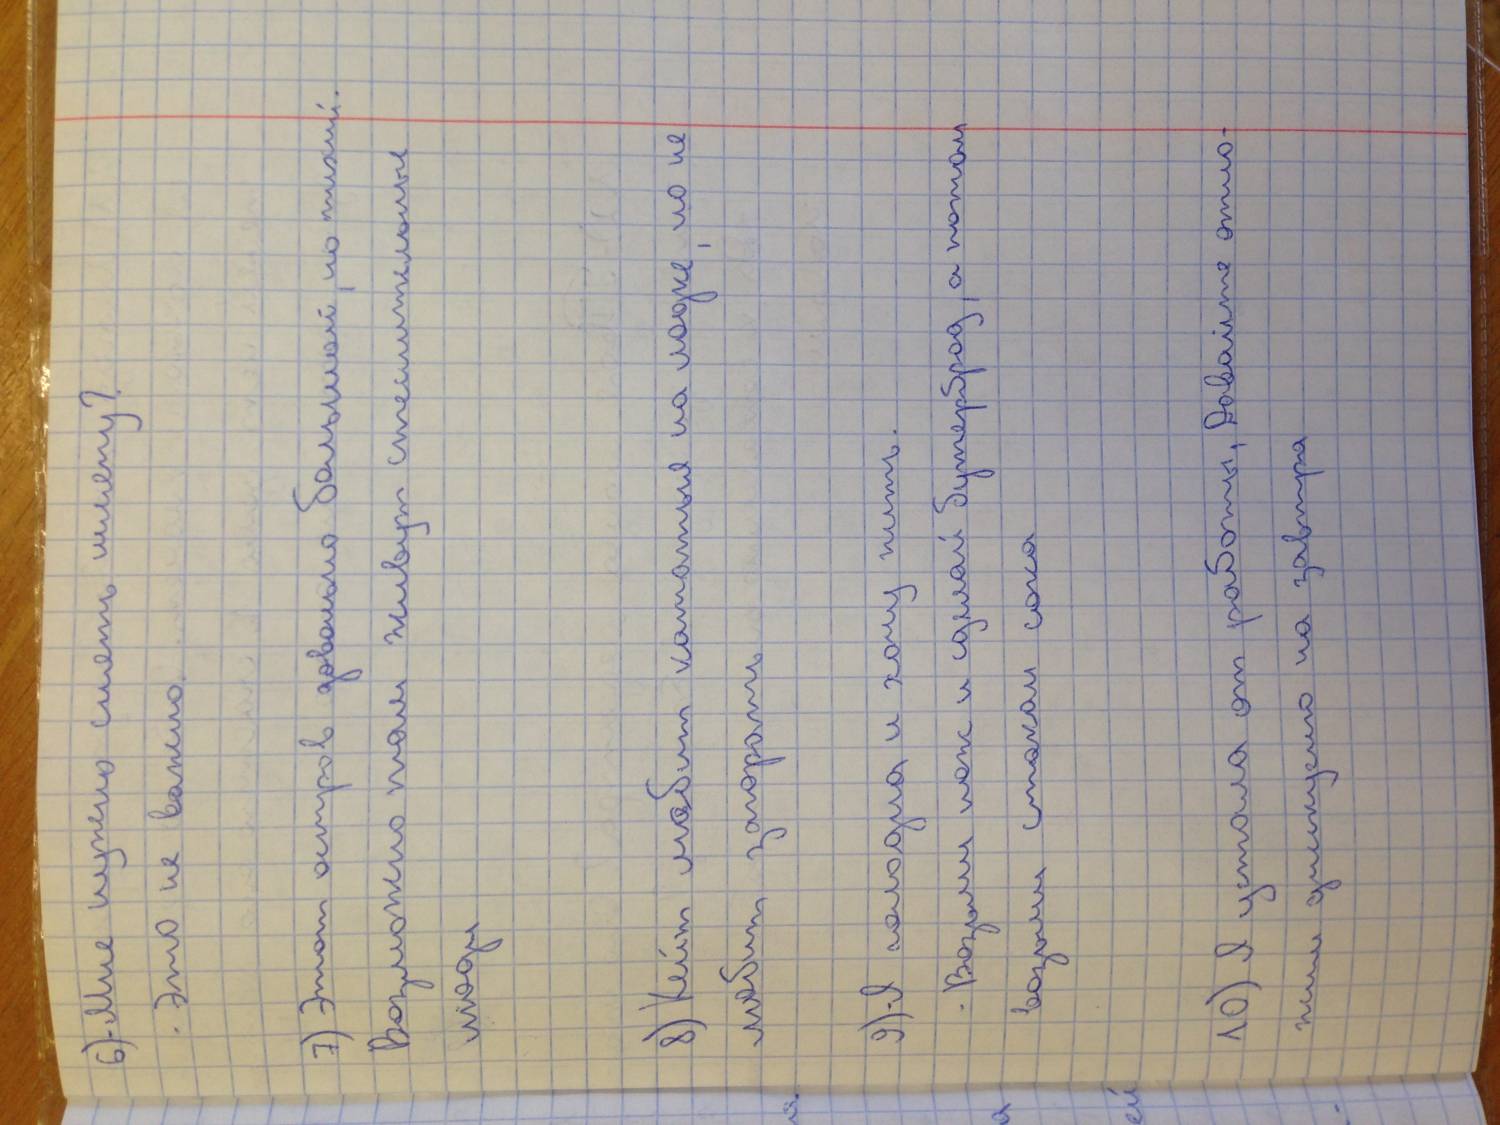 6)-Мне нужно снять шляпу?
- Это не важно.
7) Этот остров довольно большой, но тихий.
Возможно там живут стеснительные
люди
8) Кейт любит кататься на лодке, но не
любит загорать
9)-Я голодна и хочу пить.
- Возьми нож и сделай бутерброд, а потом
возьми стакан сока
10) Я устала от работы, Давайте отло-
жим на завтра